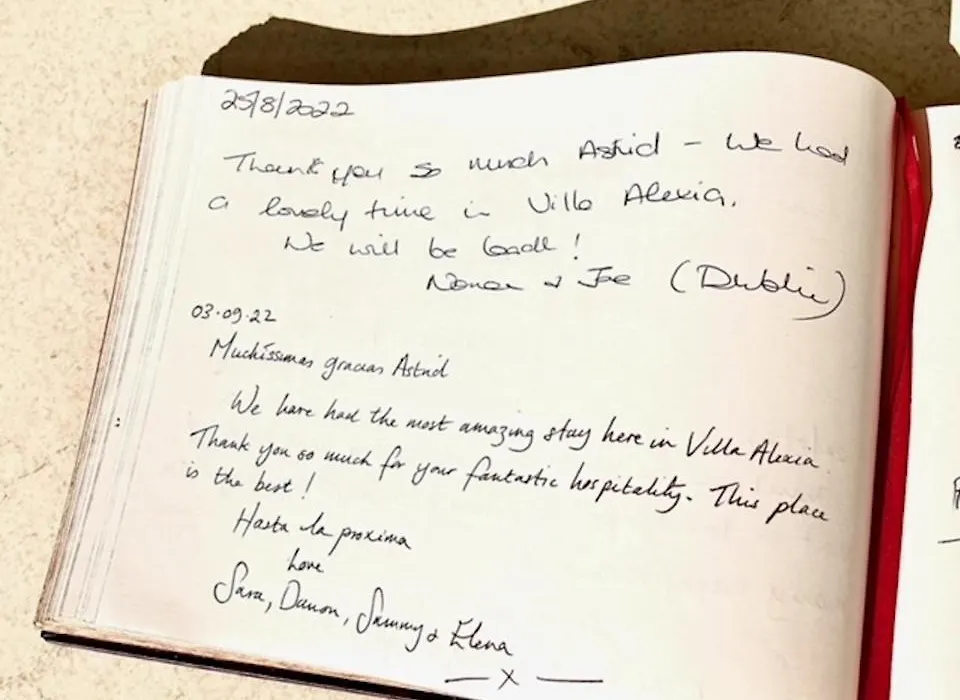 25/8/2022
Thank you so much Astrid - We had
a lovely time in Villa Alexia.
We will be back!
& Joe (Dublin)
03.09.22
Muchíssimas gracias Astrid
We have had the most amazing stay here in Villa Alexia.
Thank you so much for your fantastic hospitality. This place
is the best!
Hasta la proxima
Love
Sara, Damon, Sammy & Elena
— X —